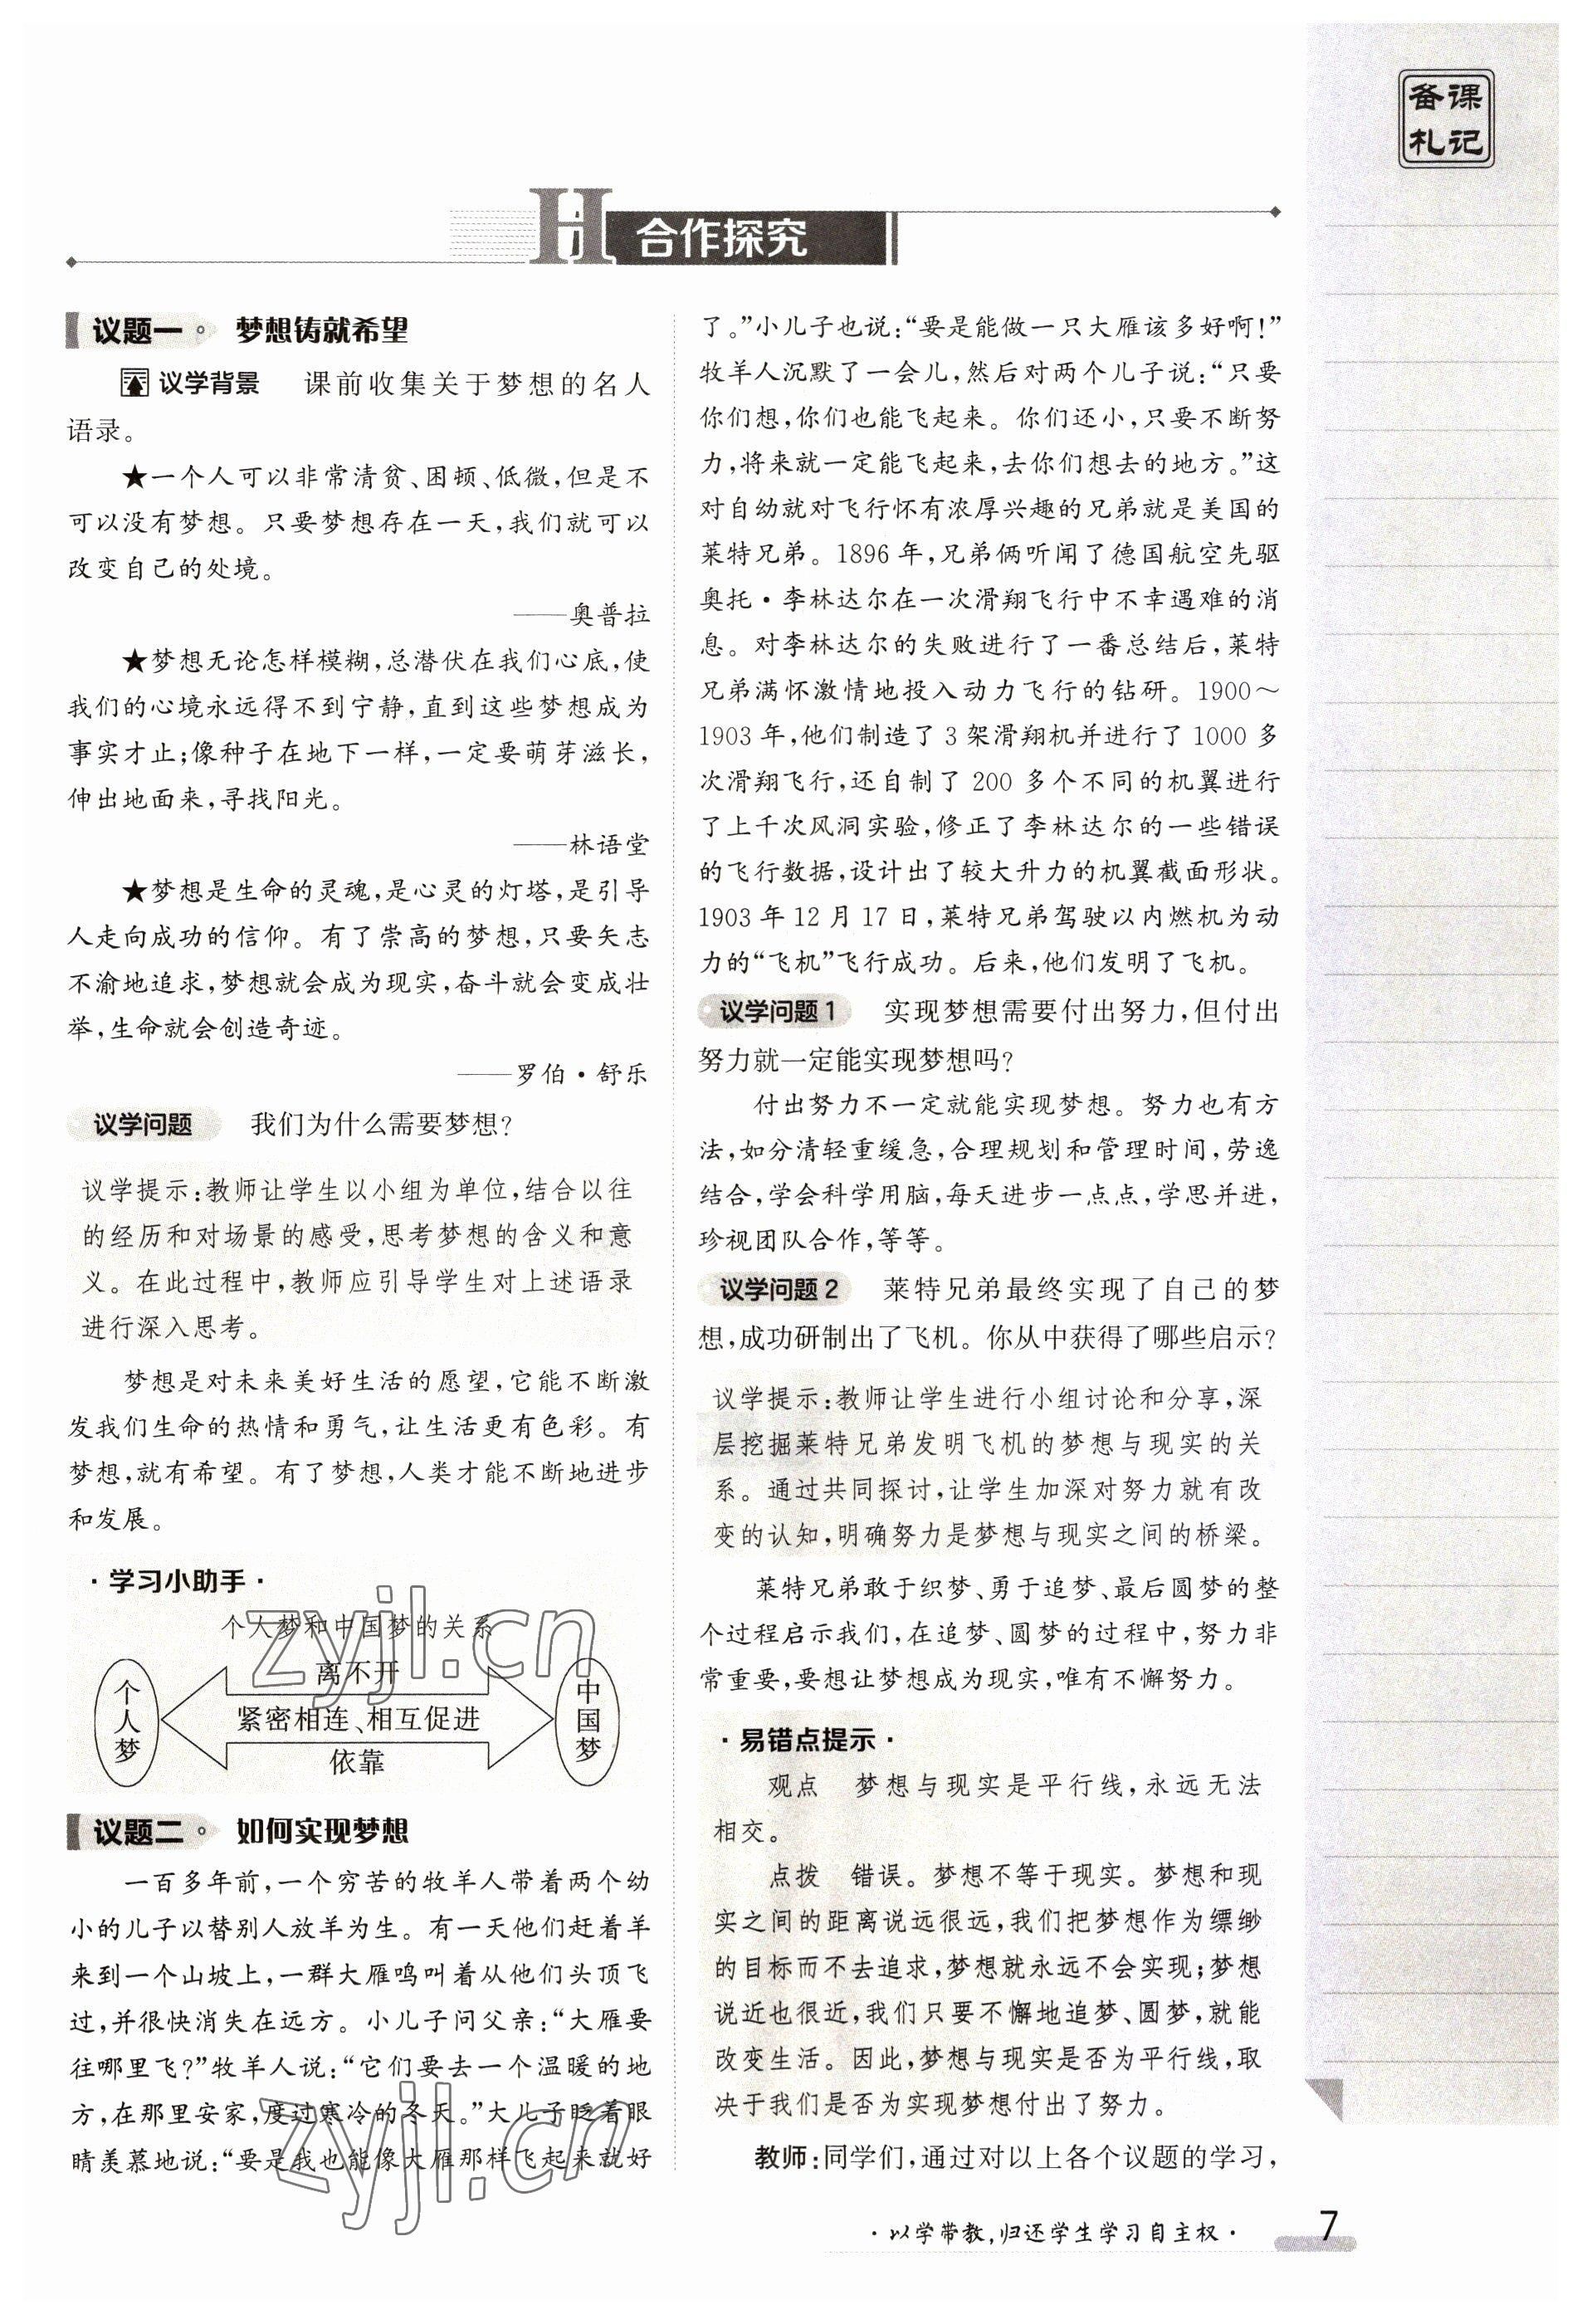 备课
札记
H 合作探究
议题一 梦想铸就希望
议学背景 课前收集关于梦想的名人
语录。
★一个人可以非常清贫、困顿、低微，但是不
可以没有梦想。只要梦想存在一天，我们就可以
改变自己的处境。
——奥普拉
★梦想无论怎样模糊，总潜伏在我们心底，使
我们的心境永远得不到宁静，直到这些梦想成为
事实才止；像种子在地下一样，一定要萌芽滋长，
伸出地面来，寻找阳光。
——林语堂
★梦想是生命的灵魂，是心灵的灯塔，是引导
人走向成功的信仰。有了崇高的梦想，只要矢志
不渝地追求，梦想就会成为现实，奋斗就会变成壮
举，生命就会创造奇迹。
——罗伯·舒乐
议学问题 我们为什么需要梦想？
议学提示：教师让学生以小组为单位，结合以往
的经历和对场景的感受，思考梦想的含义和意
义。在此过程中，教师应引导学生对上述语录
进行深入思考。
梦想是对未来美好生活的愿望，它能不断激
发我们生命的热情和勇气，让生活更有色彩。有
梦想，就有希望。有了梦想，人类才能不断地进步
和发展。
·学习小助手·
个人梦和中国梦的关系
个人梦
离不开
紧密相连、相互促进
依靠
中国梦
zyjl.cn
议题二 如何实现梦想
一百多年前，一个穷苦的牧羊人带着两个幼
小的儿子以替别人放羊为生。有一天他们赶着羊
来到一个山坡上，一群大雁鸣叫着从他们头顶飞
过，并很快消失在远方。小儿子问父亲：“大雁要
往哪里飞？”牧羊人说：“它们要去一个温暖的地
方，在那里安家，度过寒冷的冬天。”大儿子眨着眼
睛羡慕地说：“要是我也能像大雁那样飞起来就好
zyjl.cn
了。”小儿子也说：“要是能做一只大雁该多好啊！”
牧羊人沉默了一会儿，然后对两个儿子说：“只要
你们想，你们也能飞起来。你们还小，只要不断努
力，将来就一定能飞起来，去你们想去的地方。”这
对自幼就对飞行怀有浓厚兴趣的兄弟就是美国的
莱特兄弟。1896年，兄弟俩听闻了德国航空先驱
奥托·李林达尔在一次滑翔飞行中不幸遇难的消
息。对李林达尔的失败进行了一番总结后，莱特
兄弟满怀激情地投入动力飞行的钻研。1900～
1903年，他们制造了3架滑翔机并进行了1000多
次滑翔飞行，还自制了200多个不同的机翼进行
了上千次风洞实验，修正了李林达尔的一些错误
的飞行数据，设计出了较大升力的机翼截面形状。
1903年12月17日，莱特兄弟驾驶以内燃机为动
力的“飞机”飞行成功。后来，他们发明了飞机。
议学问题1 实现梦想需要付出努力，但付出
努力就一定能实现梦想吗？
付出努力不一定就能实现梦想。努力也有方
法，如分清轻重缓急，合理规划和管理时间，劳逸
结合，学会科学用脑，每天进步一点点，学思并进，
珍视团队合作，等等。
议学问题2 莱特兄弟最终实现了自己的梦
想，成功研制出了飞机。你从中获得了哪些启示？
议学提示：教师让学生进行小组讨论和分享，深
层挖掘莱特兄弟发明飞机的梦想与现实的关
系。通过共同探讨，让学生加深对努力就有改
变的认知，明确努力是梦想与现实之间的桥梁。
莱特兄弟敢于织梦、勇于追梦、最后圆梦的整
个过程启示我们，在追梦、圆梦的过程中，努力非
常重要，要想让梦想成为现实，唯有不懈努力。
·易错点提示·
观点 梦想与现实是平行线，永远无法
相交。
点拨 错误。梦想不等于现实。梦想和现
实之间的距离说远很远，我们把梦想作为缥缈
的目标而不去追求，梦想就永远不会实现；梦想
说近也很近，我们只要不懈地追梦、圆梦，就能
改变生活。因此，梦想与现实是否为平行线，取
决于我们是否为实现梦想付出了努力。
教师：同学们，通过对以上各个议题的学习，
·以学带教，归还学生学习自主权·
7